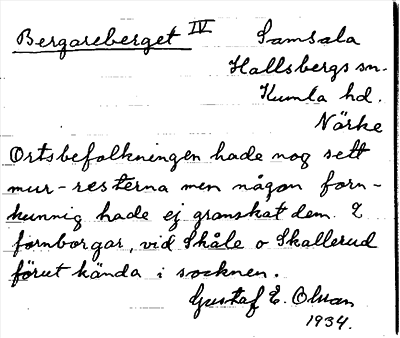 Bergareberget IV Samsala
Hallsbergs sn.
Kumla hd.
Närke
Ortsbefolkningen hade nog sett
mur-resterna men någon forn-
kunnig hade ej granskat dem. 2
fornborgar, vid Skåle o Skallerud
förut kända i socknen.
Gustaf E. Olsson
1934.